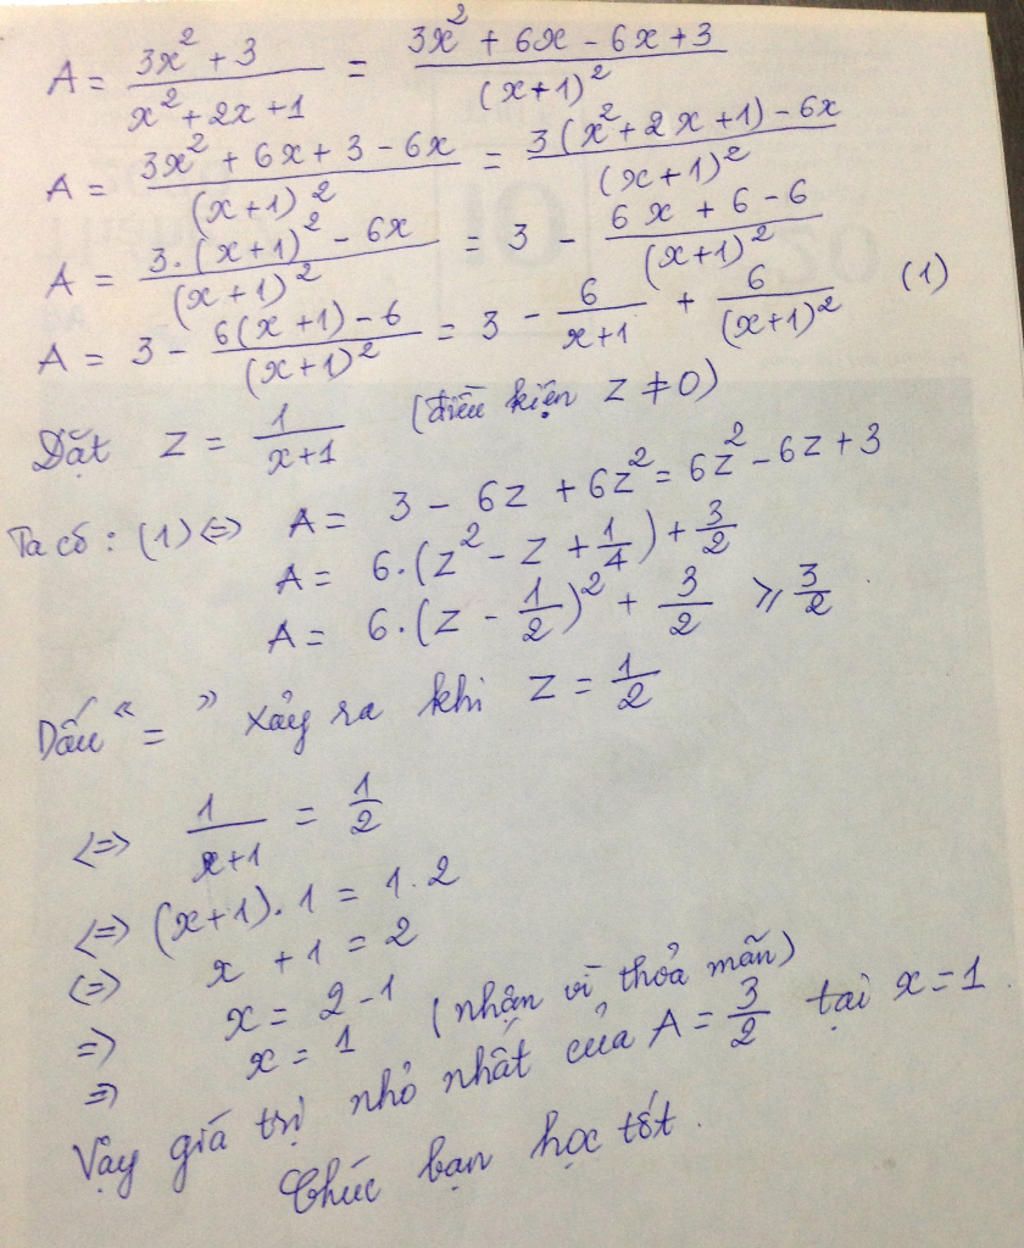 A = (3x² + 3)/(x² + 2x + 1) = (3x² + 6x - 6x + 3)/(x + 1)²
A = (3x² + 6x + 3 - 6x)/(x + 1)² = (3(x² + 2x + 1) - 6x)/(x + 1)²
A = (3.(x + 1)² - 6x)/(x + 1)² = 3 - (6x + 6 - 6)/(x + 1)²
A = 3 - (6(x + 1) - 6)/(x + 1)² = 3 - 6/(x + 1) + 6/(x + 1)² (1)
Đặt z = 1/(x + 1) (điều kiện z ≠ 0)
Ta có : (1) <=> A = 3 - 6z + 6z² = 6z² - 6z + 3
A = 6.(z² - z + 1/4) + 3/2
A = 6.(z - 1/2)² + 3/2 ≥ 3/2
Dấu "=" xảy ra khi z = 1/2
<=> 1/(x + 1) = 1/2
<=> (x + 1).1 = 1.2
<=> x + 1 = 2
=> x = 2 - 1
=> x = 1 (nhận vì thỏa mãn)
Vậy giá trị nhỏ nhất của A = 3/2 tại x = 1.
Chúc bạn học tốt.